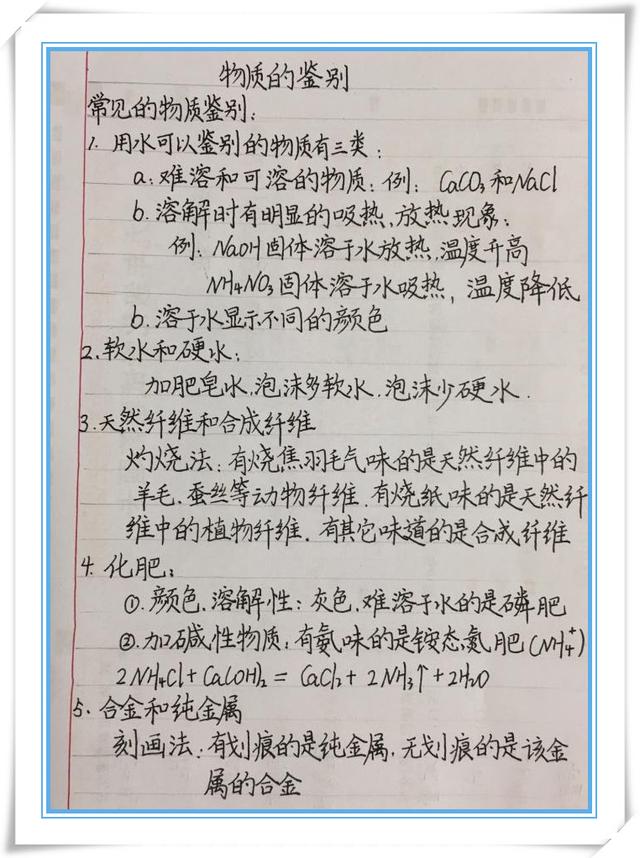 物质的鉴别
常见的物质鉴别:
1. 用水可以鉴别的物质有三类:
a:难溶和可溶的物质:例: CaCO₃和NaCl
b.溶解时有明显的吸热,放热现象:
例: NaOH固体溶于水放热,温度升高
NH₄NO₃固体溶于水吸热,温度降低
b.溶于水显示不同的颜色
2.软水和硬水:
加肥皂水,泡沫多软水.泡沫少硬水.
3.天然纤维和合成纤维
灼烧法:有烧焦羽毛气味的是天然纤维中的
羊毛.蚕丝等动物纤维.有烧纸味的是天然纤
维中的植物纤维.有其它味道的是合成纤维
4.化肥:
①.颜色.溶解性:灰色,难溶于水的是磷肥
②.加碱性物质:有氨味的是铵态氮肥(NH₄⁺)
2NH₄Cl+Ca(OH)₂=CaCl₂+2NH₃↑+2H₂O
5.合金和纯金属
刻画法.有划痕的是纯金属,无划痕的是该金
属的合金